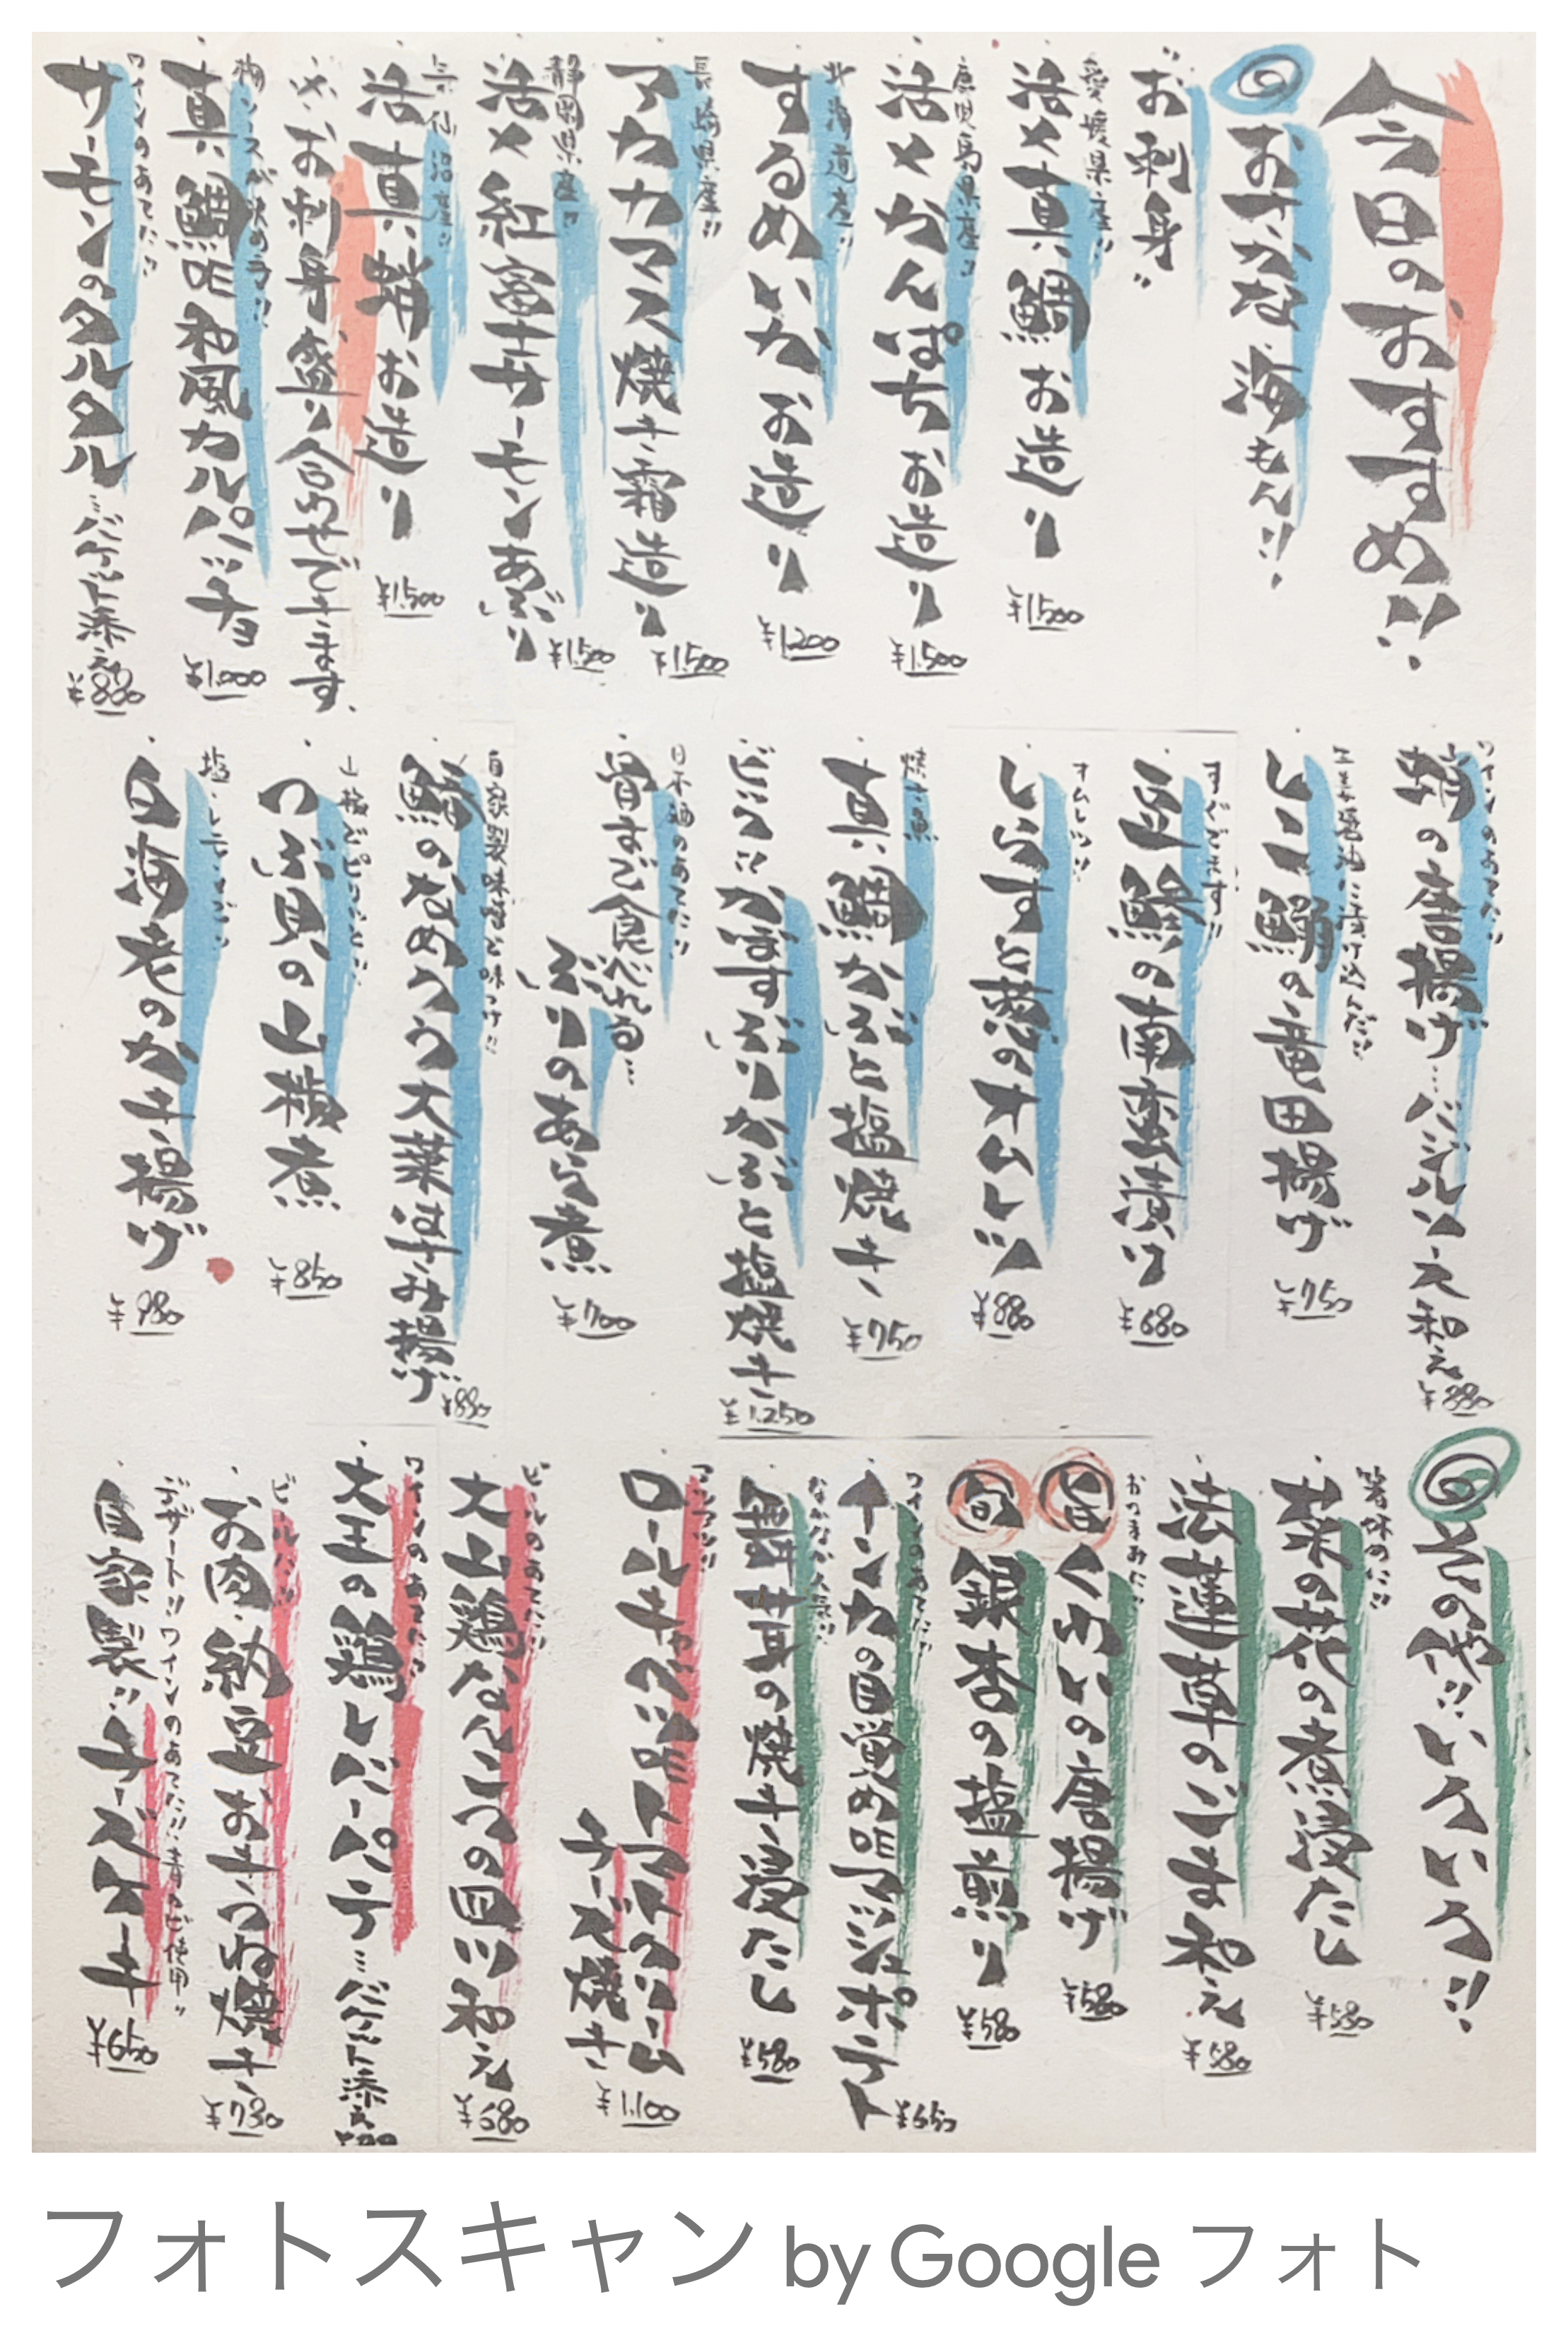 今日のおすすめ!!
おさかな海もん!!
"お刺身"
愛媛県産!!
活〆真鯛お造り
¥1,500
鹿児島県産!!
活〆かんぱちお造り
¥1,500
北海道産!!
するめいかお造り
¥1,200
長崎県産!!
アカカマス焼き霜造り
¥1,500
静岡県産!!
活〆紅富士サーモンあぶり
¥1,500
気仙沼産!!
活真蛸お造り
¥1,500
※お刺身盛り合わせできます。
梅ソースが決め手!!
真鯛の和風カルパッチョ
¥1,000
ワインのあてに!!
サーモンのタルタル…バケット添え
¥880
ワインのあてに!!
蛸の唐揚げ…バジルソース和え
¥880
生姜醤油に漬け込んだ!!
いこ鰯の竜田揚げ
¥750
すぐでます!!
豆鯵の南蛮漬け
¥680
オムレツ!!
しらすと葱のオムレツ
¥880
焼き魚
真鯛かぶと塩焼き
¥750
でかい!!かぼすぶりかぶと塩焼き
¥1,250
日本酒のあてに!!
骨まで食べれる…
ぶりのあら煮
¥700
自家製味噌と味つけ!!
鯵のなめろう大葉はさみ揚げ
¥880
山椒でピリッと!!
つぶ貝の山椒煮
¥850
塩・レモンで!!
白海老のかき揚げ
¥980
その他!!いろいろ!!
箸休めに!!
菜の花の煮浸たし
¥580
法蓮草のごま和え
¥580
おつまみに!!
旬 くわいの唐揚げ
¥580
旬 銀杏の塩煎り
¥580
ワインのあてに!!
インカの目覚めのマッシュポテト
¥650
なかなか人気!!
舞茸の焼き浸たし
¥580
アツアツ!!
ロールキャベツのトマトクリーム
チーズ焼き
¥1,100
ビールのあてに!!
大山鶏なんこつの回り和え
¥680
ワインのあてに!!
大王の鶏レバーパテ…バケット添え
ビールに!!
お肉納豆お月つね焼き
¥780
デザート!!ワインのあてに!!青カビ使用!!
自家製!!チーズケーキ
¥650
フォトスキャン by Google フォト